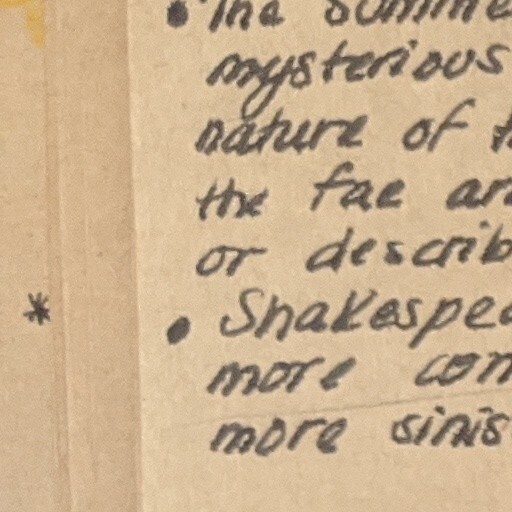 • The Summe
mysterious
nature of t
the fae ar
or describ
* • Shakespea
more con
more sinis